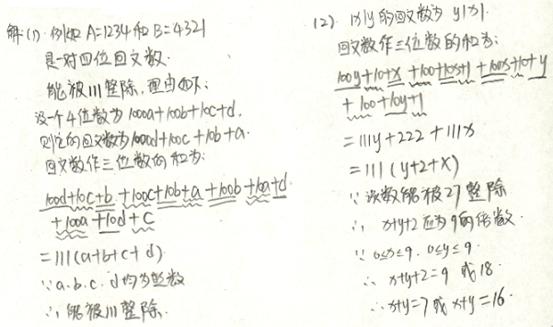 解:(1) 例如 A=1234 和 B=4321
是一对四位回文数.
能被111整除. 理由如下:
设一个4位数为 1000a+100b+10c+d.
则它的回文数为1000d+100c+10b+a.
回文数作三位数的和为:
100d+10c+b+100c+10b+a+100b+10a+d
+100a+10d+c
=111(a+b+c+d)
∵a.b.c.d均为整数
∴能被111整除.
(2). x11y 的回文数为 y11x.
回文数作三位数的和为:
100y+10+x+100+10x+y
+100+10y+1
=111y+222+111x
=111(y+2+x)
∵该数能被27整除
∴x+y+2应为9的倍数.
∵0≤x≤9. 0≤y≤9.
∴x+y+2=9 或 18.
∴x+y=7或 x+y=16.